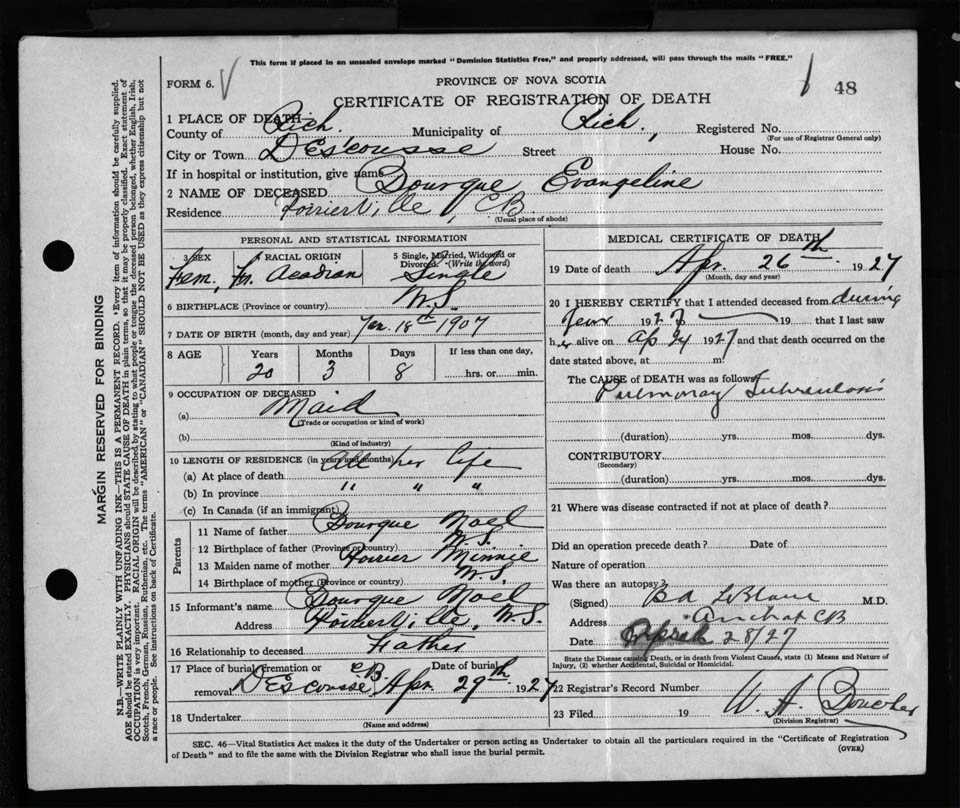 This form if placed in an unsealed envelope marked "Dominion Statistics Free," and properly addressed, will pass through the mails "FREE."
FORM 6.
PROVINCE OF NOVA SCOTIA
48
CERTIFICATE OF REGISTRATION OF DEATH
1 PLACE OF DEATH—
County of Rich. Municipality of Rich. Registered No.
(For use of Registrar General only)
City or Town D'Escousse Street House No.
If in hospital or institution, give name
2 NAME OF DECEASED Bourque Evangeline
Residence Poirierville, CB
(Usual place of abode)
PERSONAL AND STATISTICAL INFORMATION
3 SEX Fem.
4 RACIAL ORIGIN Fr. Acadian
5 Single, Married, Widowed or Divorced. (Write the word) Single
6 BIRTHPLACE (Province or country) N.S.
7 DATE OF BIRTH (month, day and year) Jan. 18th 1907
8 AGE Years Months Days If less than one day,
20 3 8 hrs. or min.
9 OCCUPATION OF DECEASED
(a) Maid
(Trade or occupation or kind of work)
(b)
(Kind of industry)
10 LENGTH OF RESIDENCE (in years and months)
(a) At place of death All her life
(b) In province " " "
(c) In Canada (if an immigrant)
Parents
11 Name of father Bourque Noel
12 Birthplace of father (Province or country) N.S.
13 Maiden name of mother Minnie
14 Birthplace of mother (Province or country) N.S.
15 Informant's name Bourque Noel
Address Poirierville, N.S.
16 Relationship to deceased Father
17 Place of burial, cremation or Date of burial
removal D'Escousse CB. Apr. 29th 1927
18 Undertaker
(Name and address)
MEDICAL CERTIFICATE OF DEATH
19 Date of death Apr. 26th 1927
(Month, day and year)
20 I HEREBY CERTIFY that I attended deceased from during
year 1927 to 19 that I last saw
her alive on Ap 24 1927 and that death occurred on the
date stated above, at m
The CAUSE of DEATH was as follows:
Pulmonary Tuberculosis
(duration) yrs. mos. dys.
CONTRIBUTORY
(Secondary)
(duration) yrs. mos. dys.
21 Where was disease contracted if not at place of death?
Did an operation precede death? Date of
Nature of operation
Was there an autopsy?
(Signed) B A LeBlanc M.D.
Address Arichat CB
Date April 28/27
State the Disease causing Death, or in death from Violent Causes, state (1) Means and Nature of
Injury, (2) whether Accidental, Suicidal or Homicidal.
22 Registrar's Record Number
23 Filed 19 W. A. Boucher
(Division Registrar)
SEC. 46—Vital Statistics Act makes it the duty of the Undertaker or person acting as Undertaker to obtain all the particulars required in the "Certificate of Registration
of Death" and to file the same with the Division Registrar who shall issue the burial permit.
(OVER)
MARGIN RESERVED FOR BINDING
N.B.—WRITE PLAINLY, WITH UNFADING INK—THIS IS A PERMANENT RECORD. Every item of information should be carefully supplied.
AGE should be stated EXACTLY. PHYSICIANS should STATE CAUSE OF DEATH in plain terms, so that it may be properly classified. Exact statement of
OCCUPATION is very important. RACIAL ORIGIN will be described by stating to what people or tongue the deceased person belonged, whether English, Irish,
Scotch, French, German, Russian, Ruthenian, etc. The terms "AMERICAN" or "CANADIAN" SHOULD NOT BE USED as they express citizenship but not
a race or people. See instructions on back of Certificate.